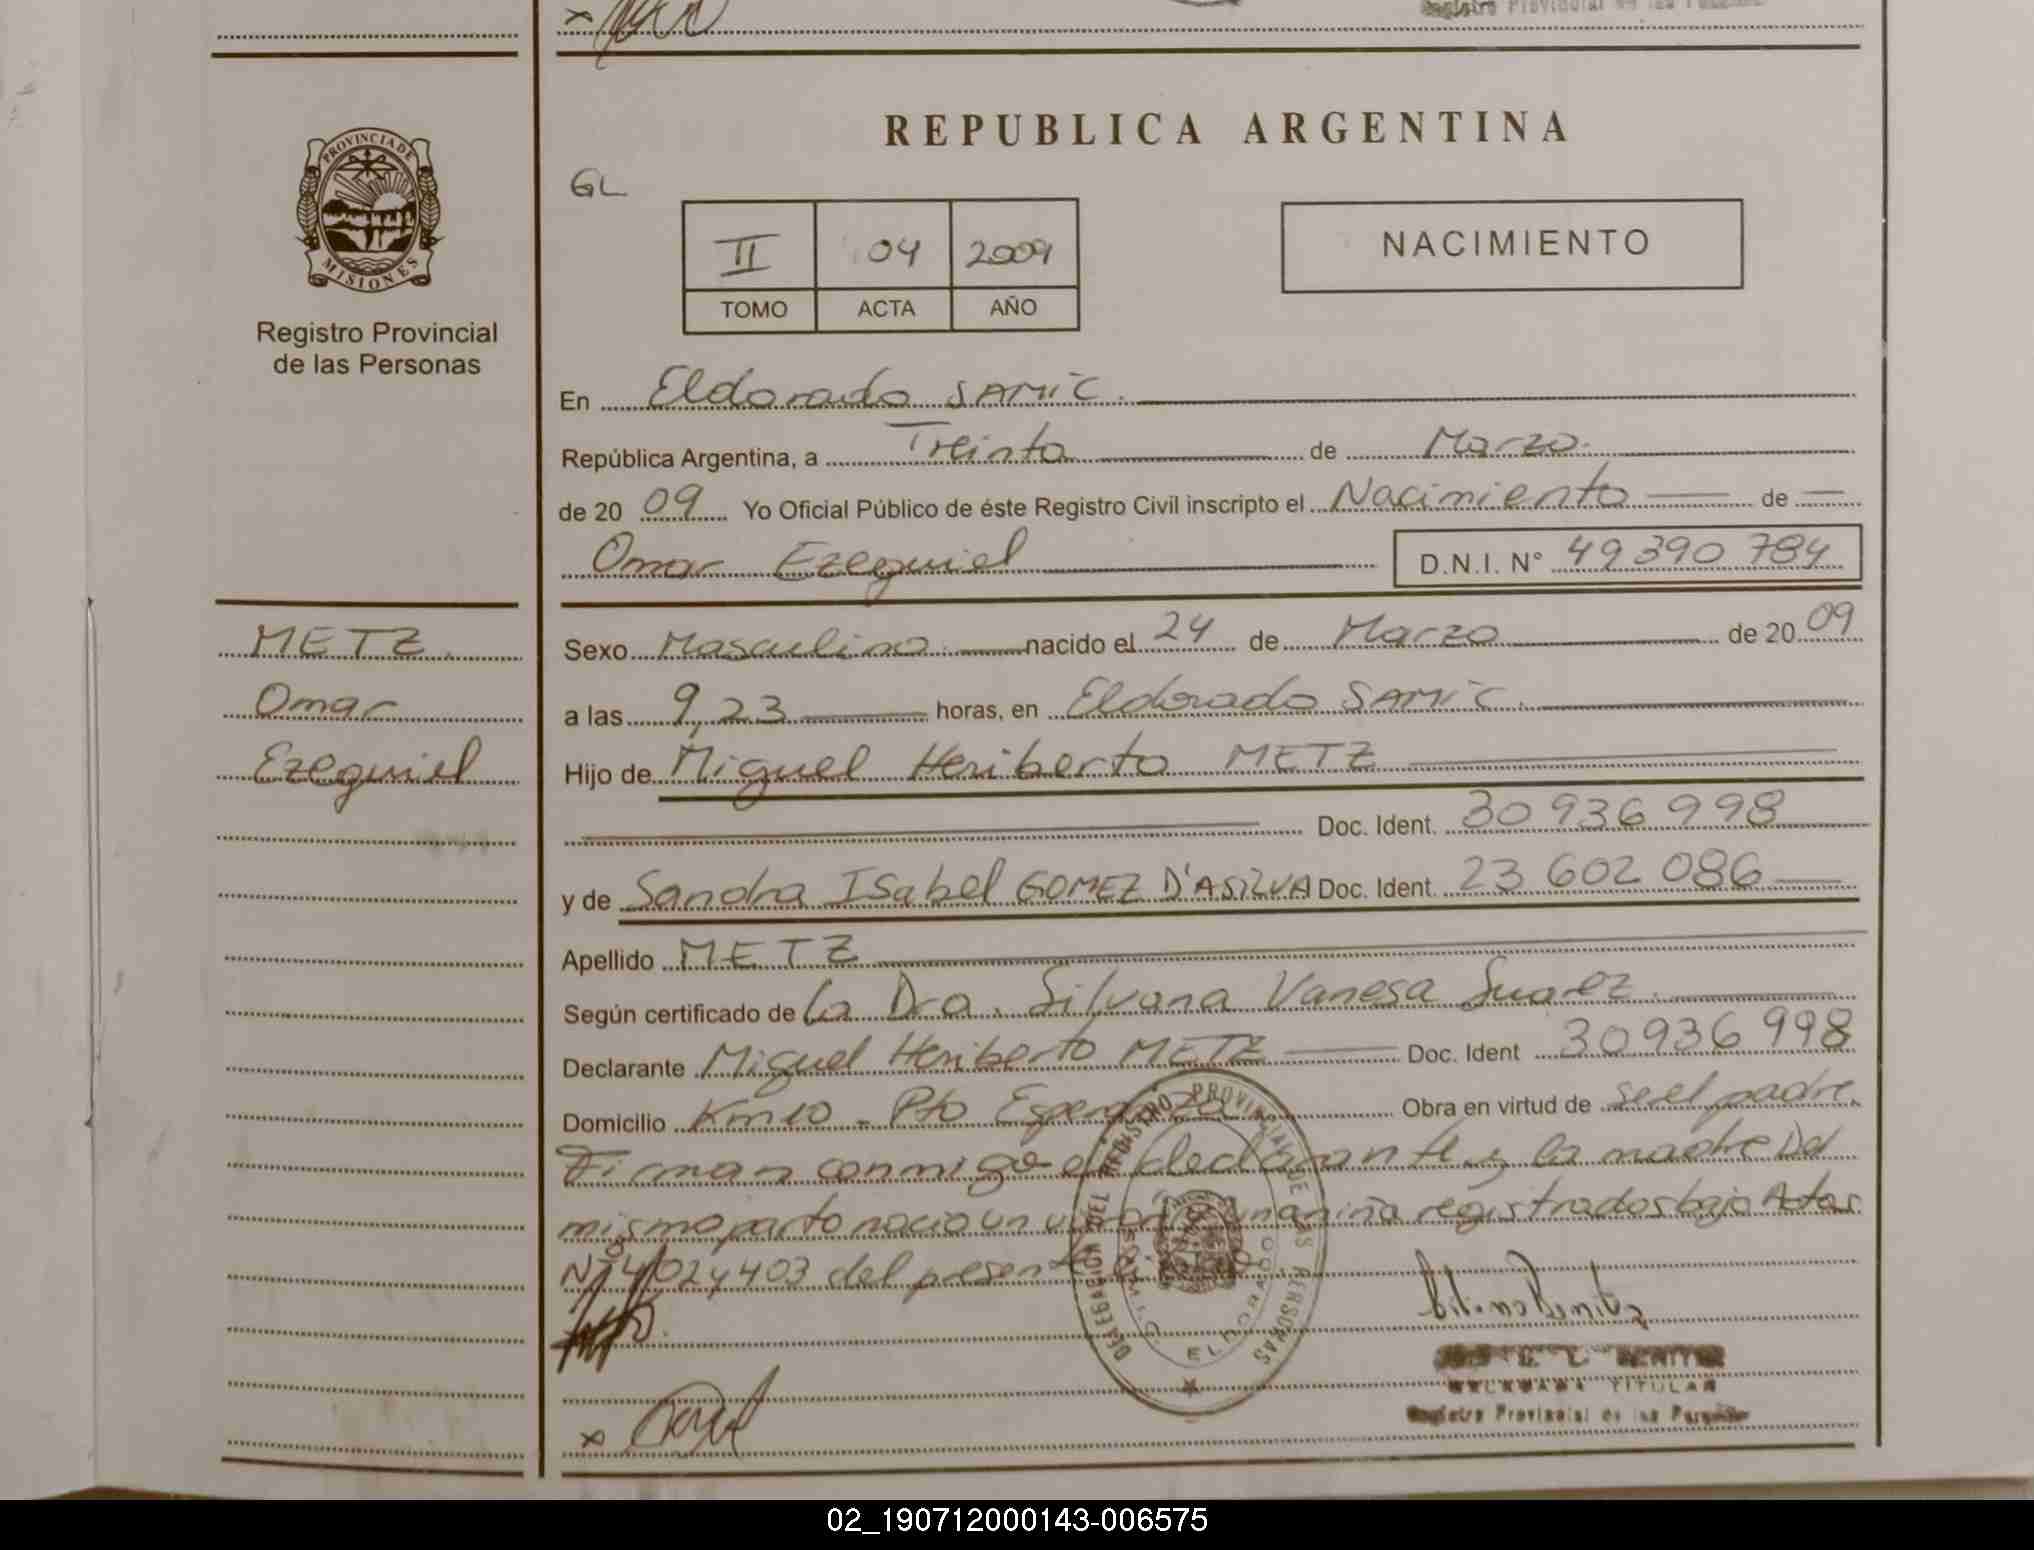 Registro Provincial de las Personas
PROVINCIA DE
MISIONES
Registro Provincial
de las Personas
METZ.
Omar
Ezequiel
REPUBLICA ARGENTINA
GL
II 04 2009
TOMO ACTA AÑO
NACIMIENTO
En Eldorado SAMIC.
República Argentina, a Treinta de Marzo.
de 20 09 Yo Oficial Público de éste Registro Civil inscripto el Nacimiento de
Omar Ezequiel D.N.I. N° 49390784
Sexo Masculino nacido el 24 de Marzo de 20 09
a las 9,23 horas, en Eldorado SAMIC.
Hijo de Miguel Heriberto METZ
Doc. Ident. 30936998
y de Sandra Isabel GOMEZ D'ASILVA Doc. Ident. 23602086
Apellido METZ
Según certificado de La Dra. Silvana Vanesa Suarez.
Declarante Miguel Heriberto METZ Doc. Ident 30936998
Domicilio Km 10 - Pto Esperanza Obra en virtud de ser el padre.
Firman conmigo el declarante y la madre Del
mismo parto nacio un varon y una niña registrados bajo Actas
N° 402 y 403 del presente
DELEGACION DEL REGISTRO PROVINCIAL DE LAS PERSONAS
ELDORADO
BENITEZ
DELEGADA TITULAR
Registro Provincial de las Personas
02_190712000143-006575